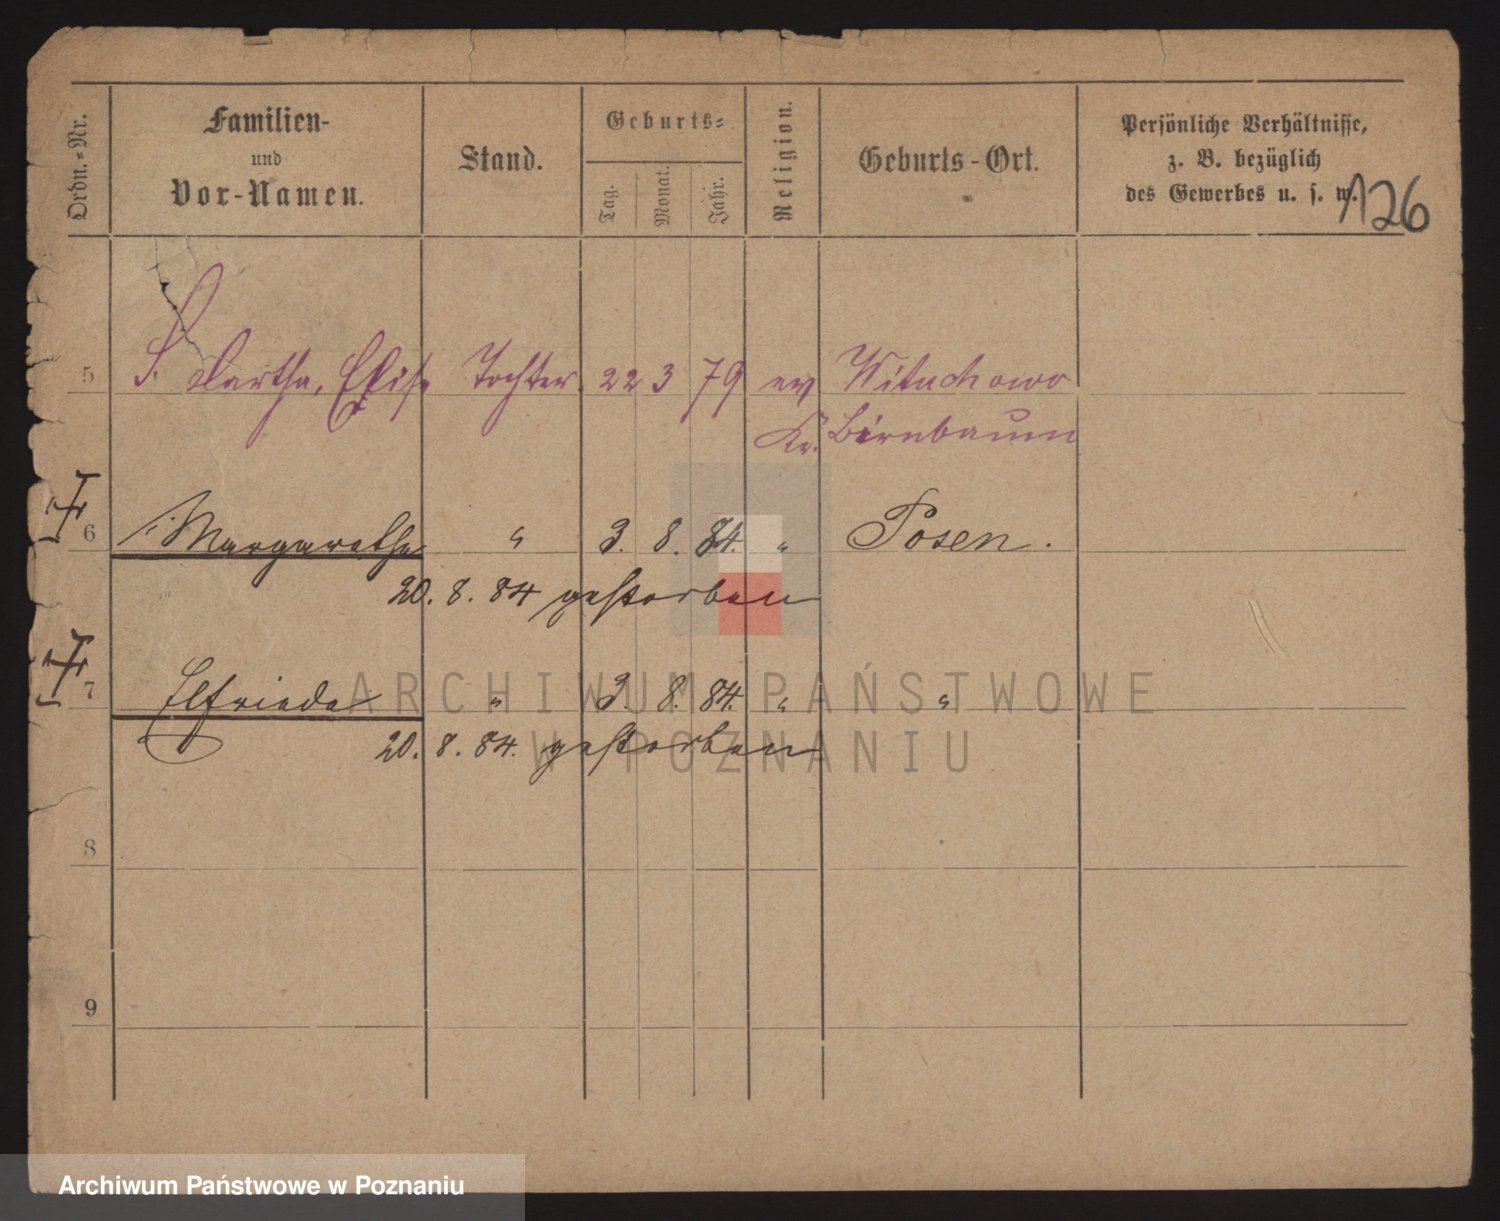 Ordn.-Nr.
Familien-
und
Vor-Namen.
Stand.
Geburts-
Tag.
Monat.
Jahr.
Religion.
Geburts-Ort.
Persönliche Verhältnisse,
z. B. bezüglich
des Gewerbes u. s. w.
126
5 Elise Tochter 22 3 79 ev Wituchowo
Kr. Birnbaum
6 Margarethe " 3. 8. 84. " Posen.
20. 8. 84 gestorben
7 Elfriede " 3. 8. 84. " "
20. 8. 84. gestorben
8
9
ARCHIWUM PAŃSTWOWE
W POZNANIU
Archiwum Państwowe w Poznaniu